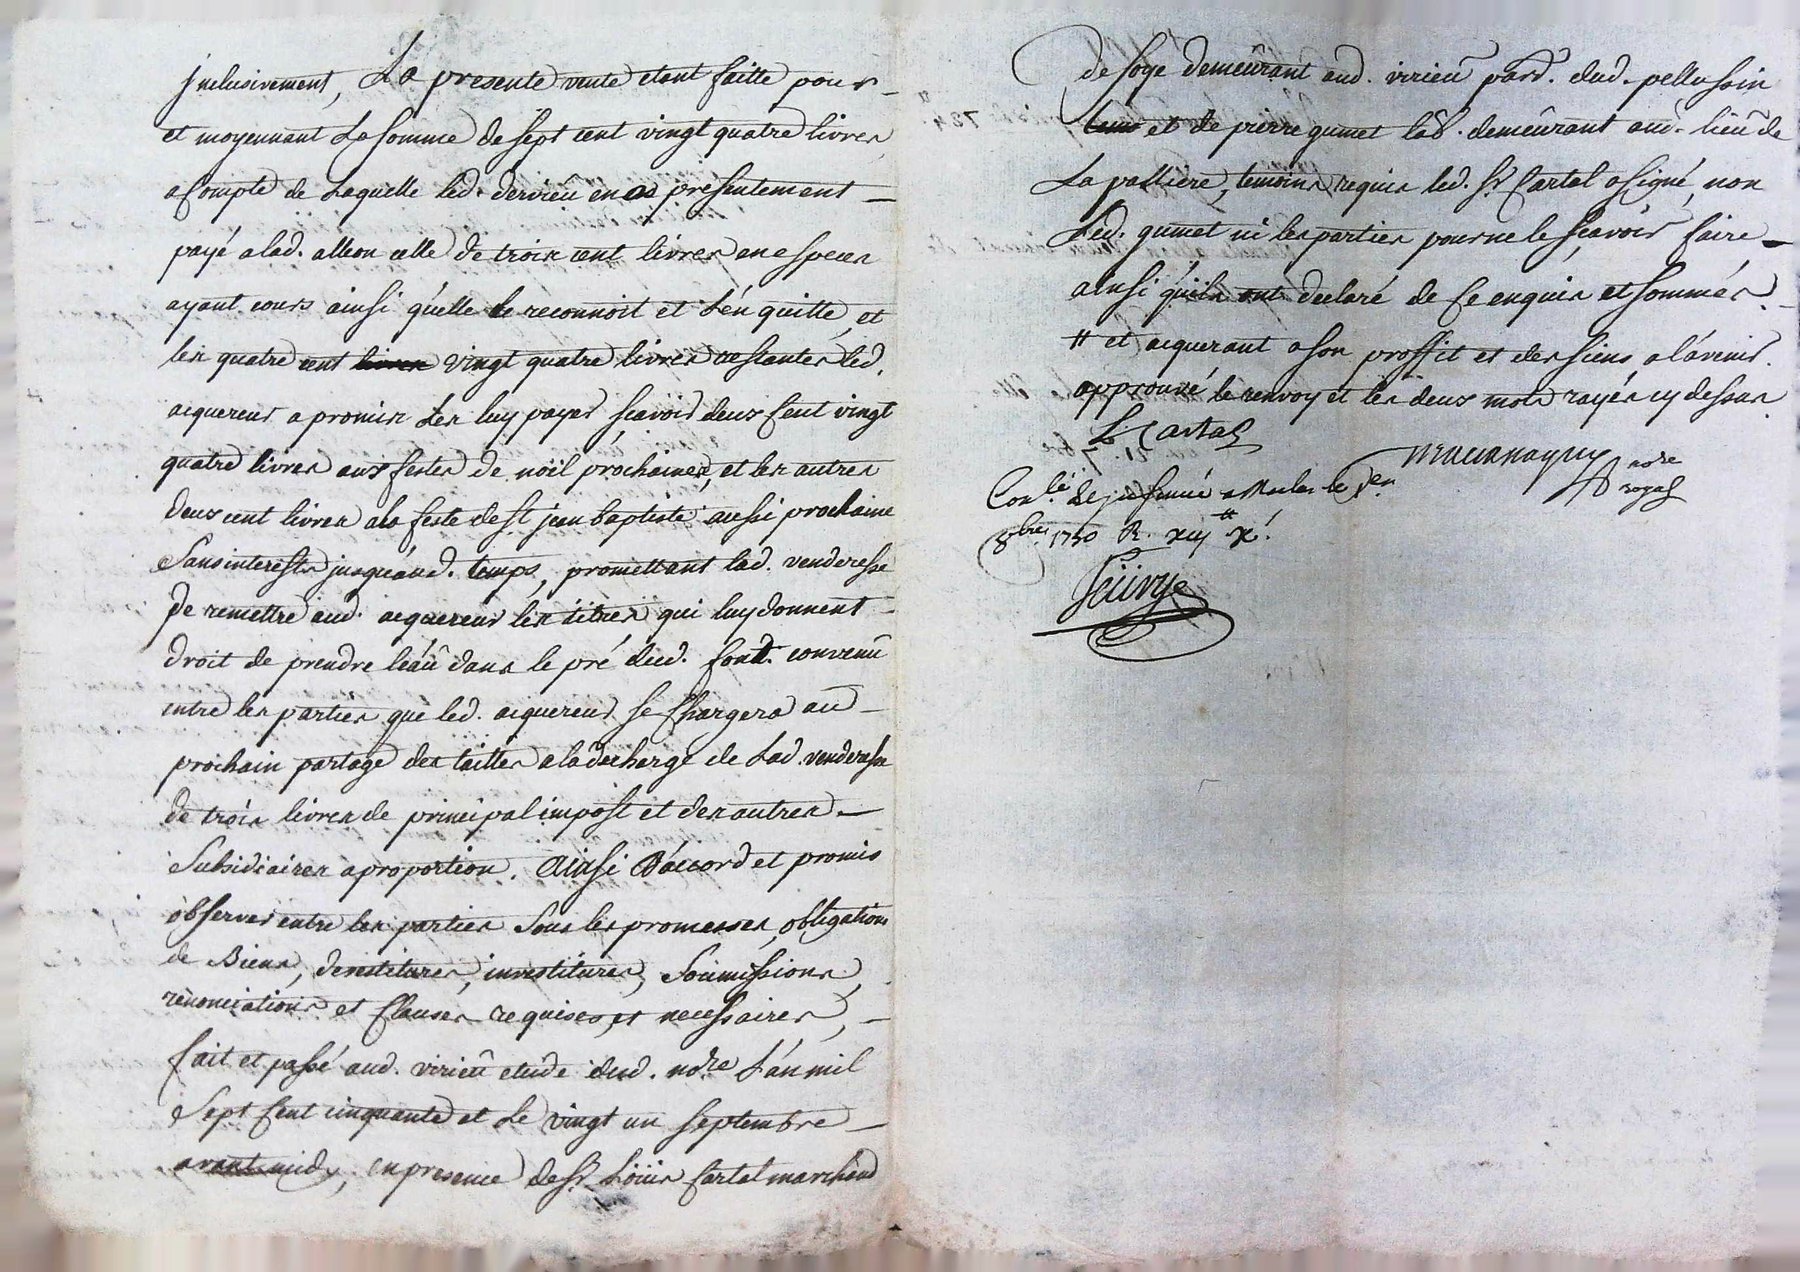 jnclusivement, La presente vente etant faitte pour
et moyennant La somme de sept cent vingt quatre livres
a compte de Laquelle led. dervieû en a presentement
payé a lad. alleon celle de trois cent livres en especes
ayant cours ainsi qu'elle le reconnoit et L'en quitte, et
les quatre cent livres vingt quatre livres restantes led.
acquereur a promis de les luy payer sçavoir deux sent vingt
quatre livres aux festes de noël prochaines, et les autres
deux cent livres a la feste de st. jean baptiste aussi prochaine
Sans interests jusqu'aud. temps, promettant lad. venderesse
de remettre aud. acquereur les titres qui luy donnent
droit de prendre l'eaû dans le pré dud. fond. convenû
entre les parties que led. acquereur se Chargera aû
prochain partage des tailles a la decharge de Lad. venderesse
de trois livres de principal impost et des autres
Subsidiaires a proportion. Ainsi D'accord et promis
observer entre les parties Sous les promesses, obligations
de Biens, devestitures, investitures, Soûmissions,
renonciations et Clauses requises et necessaires,
fait et passé aud. virieû etude dud. nore L'an mil
Sept sent cinquante et Le vingt un septembre
avant midy, en presence de Sr. Loüis Cartal marchand
de soye demeûrant aud. virieû parr. dud. pellussin
et de pierre gumet lab. demeûrant aud. lieû de
La valliere, temoins requis led. Sr. Cartal a signé, non
Led. gumet ni les parties pour ne le sçavoir faire
ainsi qu'ils ont declaré de ce enquis et sommés
# et acquerant a son proffit et des siens a l'avenir.
approuvé le renvoy et les deux mots rayés cy dessus
L. Cartal
nore
royal
Conlé
8bre 1750 R.